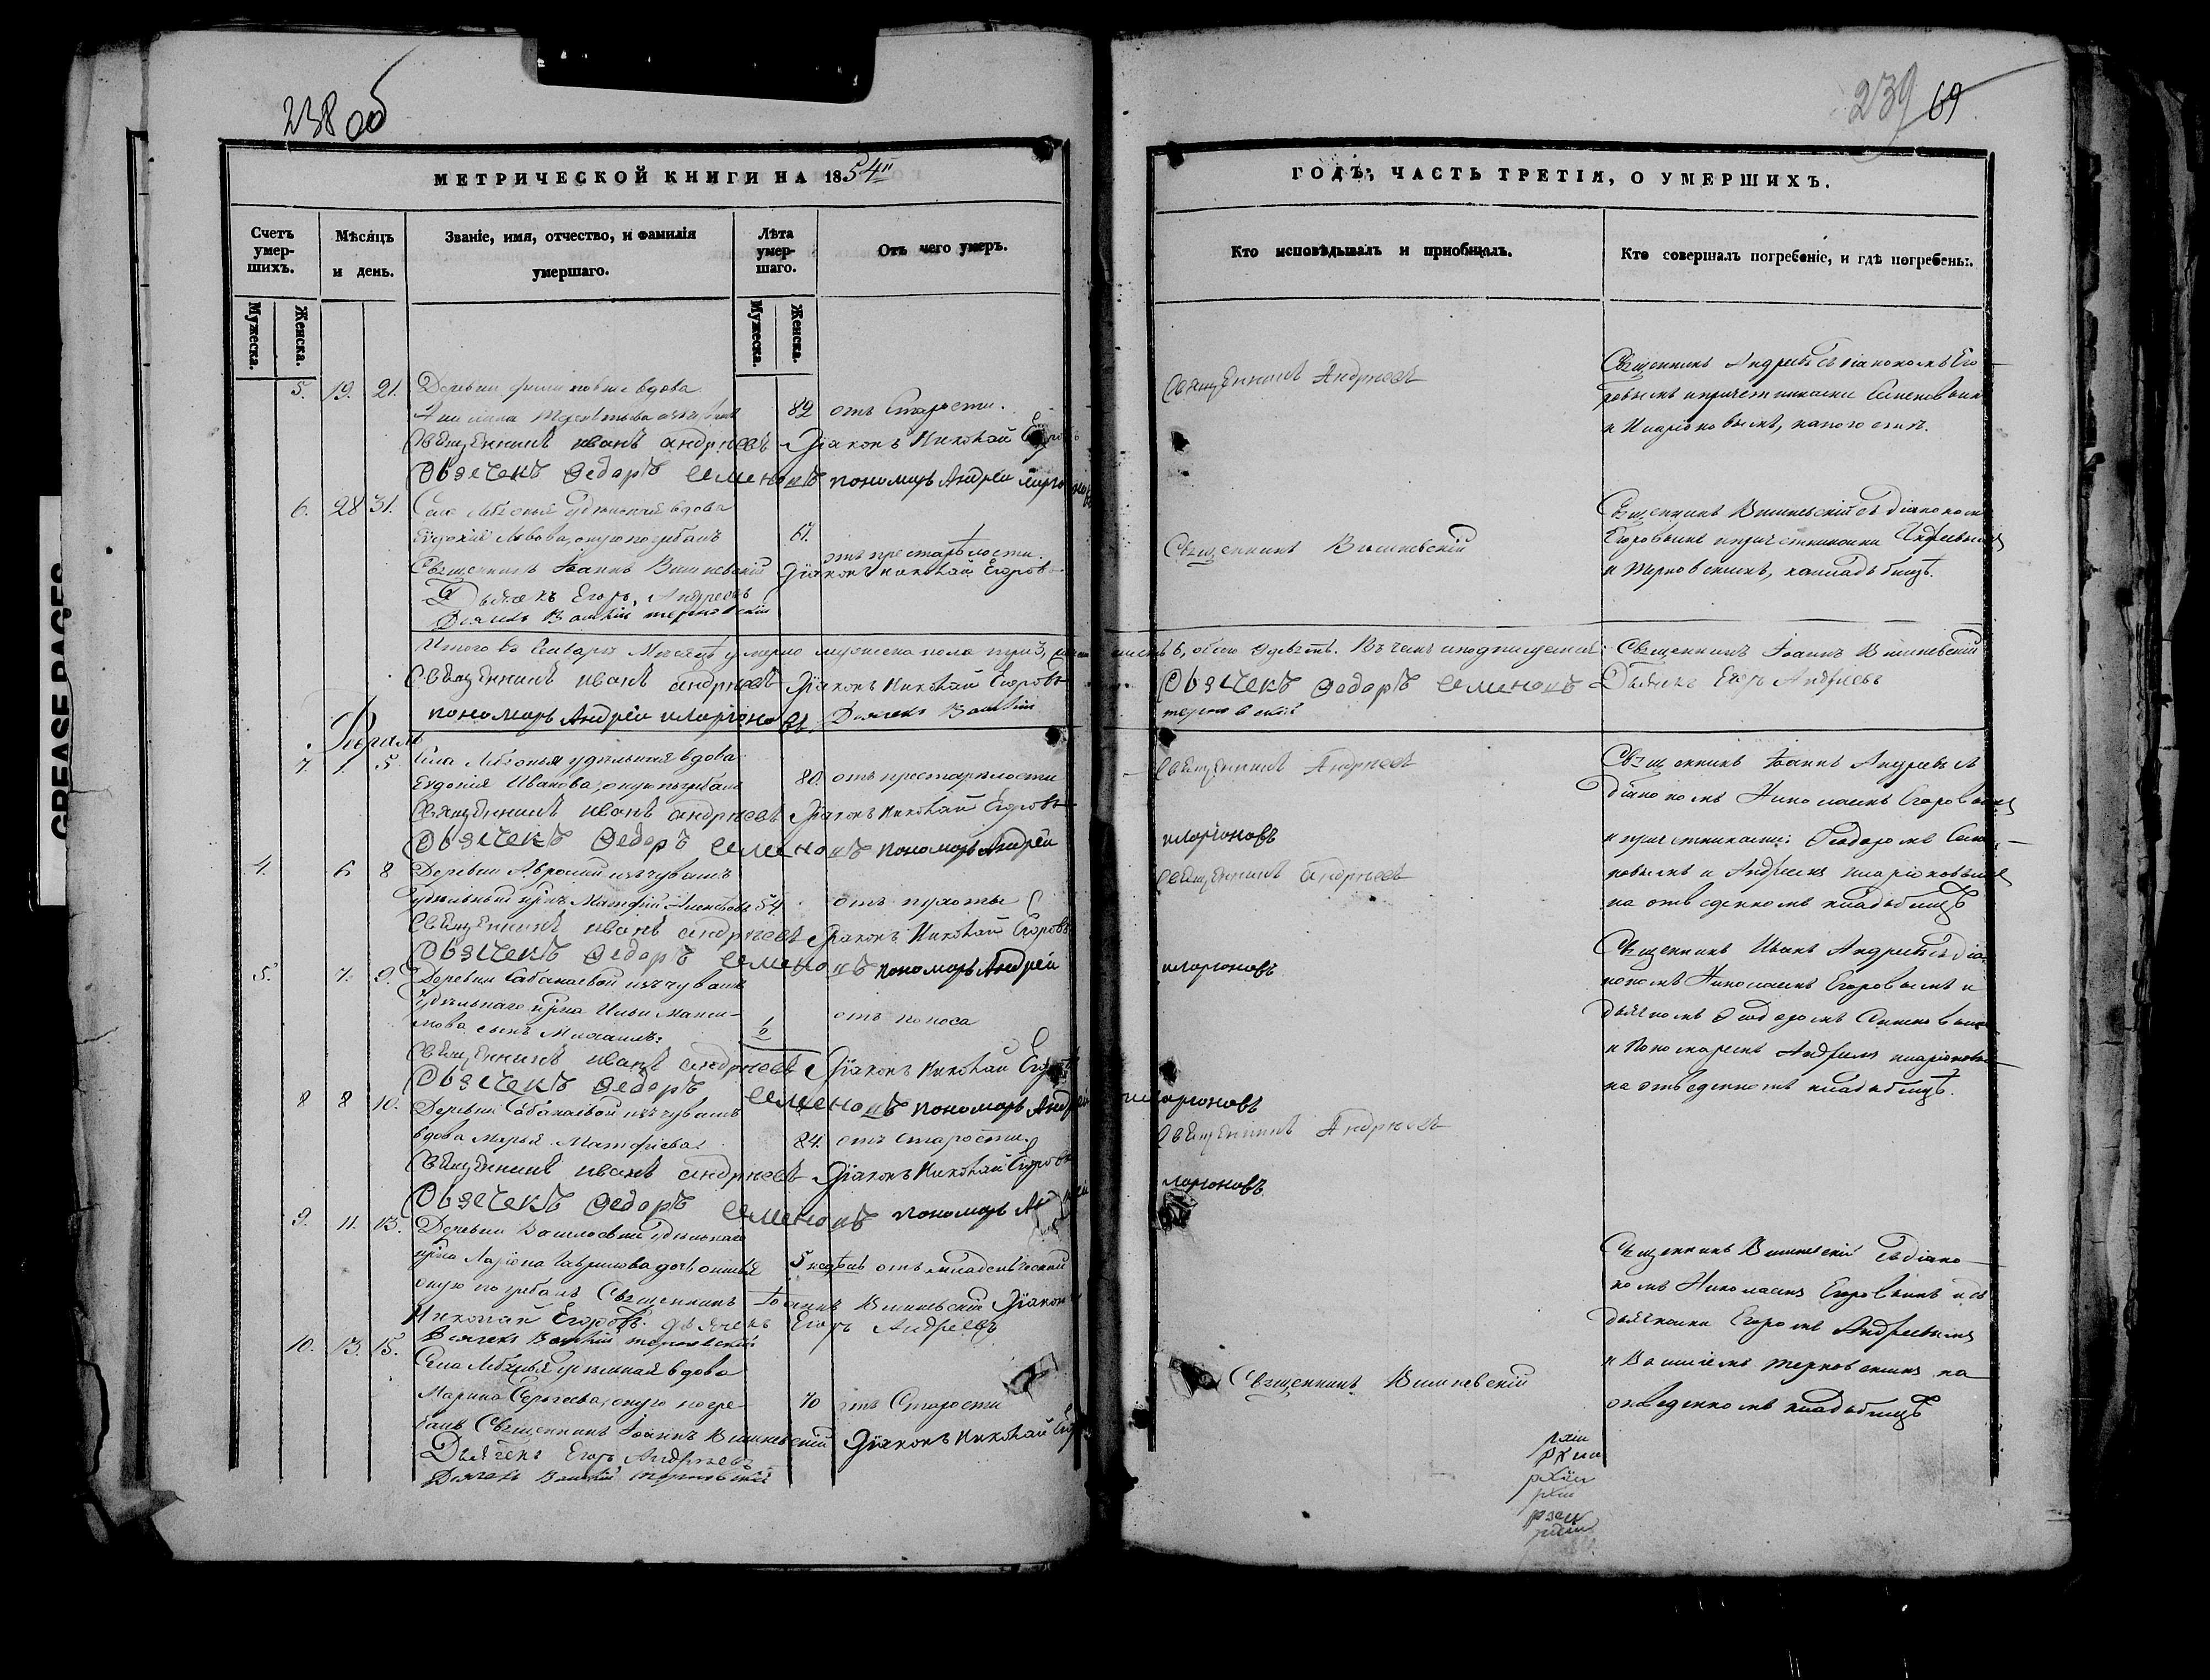 238 об
МЕТРИЧЕСКОЙ КНИГИ НА 1854й
Счетъ умер-шихъ.
Мѣсяцъ и день.
Званіе, имя, отчество, и фамилія умершаго.
Лѣта умер-шаго.
Отъ чего умеръ.
Мужеска.
Женска.
Мужеска.
Женска.
5. 19. 21. Деревни вдова
82 отъ Старости.
Священникъ иванъ андреевъ Діаконъ Николай Егоровъ
Дьячекъ Ѳедоръ Семеновъ пономарь Андрей
6. 28 31. Села вдова
Евдокія Львова, оную погребалъ 61.
отъ престарѣлости.
Священникъ Іоаннъ Вишневскій Діаконъ николай Егоровъ
Дьячекъ Егоръ Андреевъ
Дьячекъ терновскій
Итого въ Январѣ Мѣсяцѣ умерло мужеска пола три 3,
Священникъ иванъ андреевъ Діаконъ Николай Егоровъ
пономарь Андрей иларіоновъ. Дьячекъ
Февраль
7. 1. 5. Села удѣльная вдова
Евдокія Иванова, оную погребалъ 80. отъ престарѣлости
Священникъ иванъ андреевъ Діаконъ Николай Егоровъ
Дьячекъ Ѳедоръ Семеновъ пономарь Андрей
4. 6 8 Деревни изъ чувашъ
удѣльный крнъ Матфій 54. отъ
Священникъ иванъ андреевъ Діаконъ Николай Егоровъ
Дьячекъ Ѳедоръ Семеновъ пономарь Андрей
5. 7. 9. Деревни Сабанаевой изъ чувашъ
удѣльнаго крна Ильи Макси-
мова сынъ Михаилъ. 1/2 отъ поноса
Священникъ иванъ андреевъ Діаконъ Николай
Дьячекъ Ѳедоръ Семеновъ пономарь Андрей
8 8 10. Деревни Сабанаевой изъ чувашъ
вдова Марья Матфіева. 84. отъ старости.
Священникъ иванъ андреевъ Діаконъ Николай Егоровъ
Дьячекъ Ѳедоръ Семеновъ пономарь
9. 11. 13. Деревни удѣльнаго
крна Ларіона Гаврилова дочь 5 недѣль отъ младенческой
оную погребалъ Священникъ Іоаннъ Вишневскій Діаконъ
Николай Егоровъ. дьячекъ Егоръ Андреевъ
Дьячекъ терновскій
10. 13. 15. Села удѣльная вдова
Марина Сергеева, оную погре- 70 отъ Старости
балъ Священникъ Іоаннъ Вишневскій Діаконъ Николай
Дьячекъ Егоръ Андреевъ
Дьячекъ терновскій
239 69
ГОДЪ, ЧАСТЬ ТРЕТІЯ, О УМЕРШИХЪ.
Кто исповѣдывалъ и пріобщалъ.
Кто совершалъ погребеніе, и гдѣ погребены.
Священникъ Андреевъ
Священникъ Андреевъ съ діакономъ Его-
ровымъ и причетниками Семеновымъ
и Иларіоновымъ,
Священникъ Вишневскій
Священникъ Вишневскій съ діакономъ
Егоровымъ и причетниками Андреевымъ
и Терновскимъ, на кладбищѣ.
6, обоего девять. Въ чемъ и подписуемся: Священникъ Іоаннъ Вишневскій
Дьячекъ Ѳедоръ Семеновъ Дьячекъ Егоръ Андреевъ
терновскій
Священникъ Андреевъ
Священникъ Іоаннъ Андреевъ съ
діакономъ Николаемъ Егоровымъ
иларіоновъ
и причетниками: Ѳеодоромъ Семе-
Священникъ андреевъ
новымъ и Андреемъ иларіоновымъ
на отведенномъ кладбищѣ
Священникъ Иванъ Андреевъ съ діа-
иларіоновъ
кономъ Николаемъ Егоровымъ и
дьячкомъ Ѳеодоромъ Семеновымъ
и Пономаремъ Андреемъ иларіоновымъ
на отведенномъ кладбищѣ.
иларіоновъ
Священникъ Андреевъ
иларіоновъ
Священникъ Вишневскій съ діако-
номъ Николаемъ Егоровымъ и съ
дьячками Егоромъ Андреевымъ
и терновскимъ на
Священникъ Вишневскій
отведенномъ кладбищѣ
GREASE PAGES